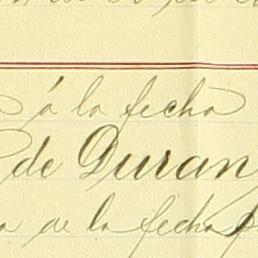 á la fecha
de Duran
de la fecha